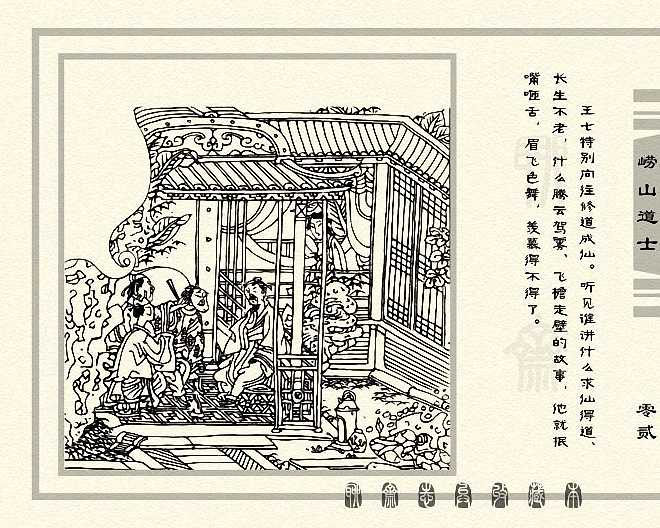 王七特别向往修道成仙。听见谁讲什么求仙得道、
长生不老，什么腾云驾雾、飞檐走壁的故事，他就抿
嘴咂舌，眉飞色舞，羡慕得不得了。
崂山道士
零贰